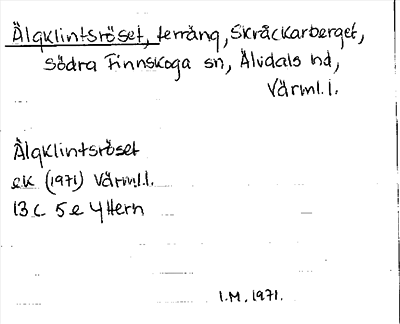 Älgklintsröset, terräng, Skråckarberget,
Södra Finnskoga sn, Älvdals hd,
Värml.l.
Älgklintsröset
ek (1971) Värml.l.
13 C 5 e Yttern
I.M. 1971.